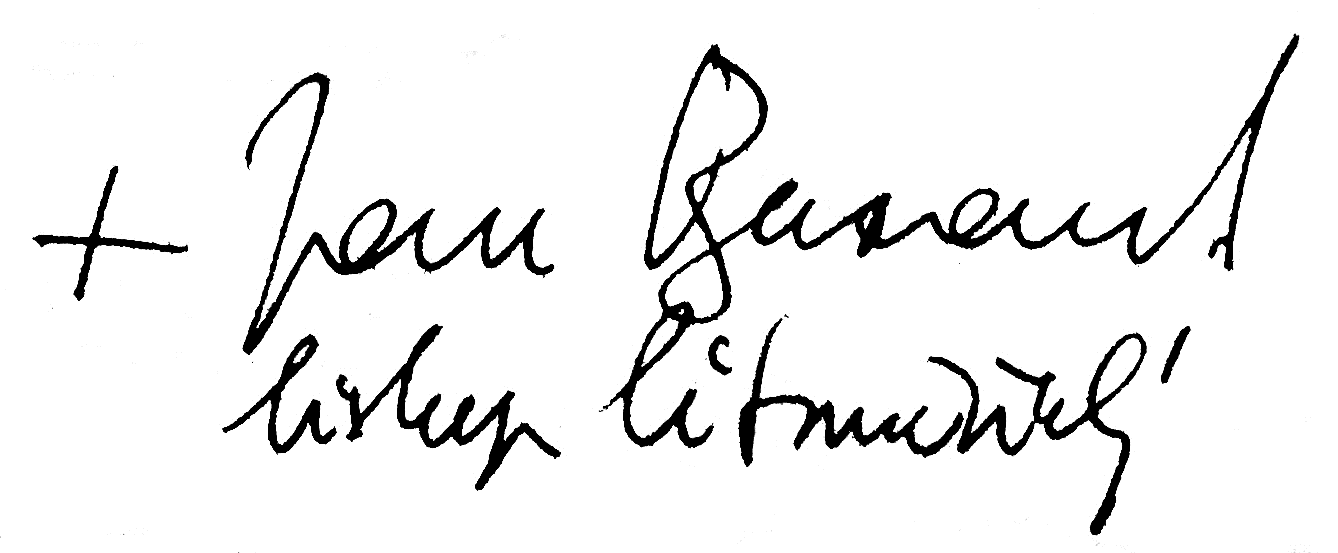 + Jan Baxant
biskup litoměřický